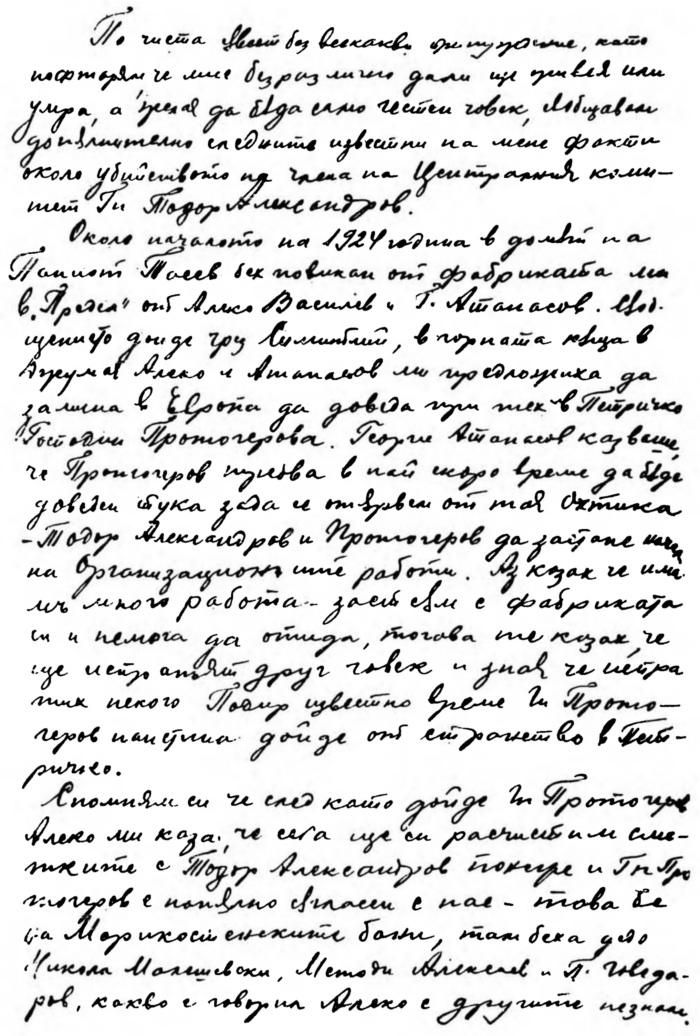 По чиста съвест без всекакво принуждение, като
повтарям че мие безразлично дали ще живея или
умра, а желая да бѫда само честен човек, съобщавам
допълнително следните известни на мене факти
около убийството на члена на Централния коми-
тет Гн Тодор Александров.
Около началото на 1924 година в домът на
Панчот Тасев бех повикан от фабриката ми
в „Предел" отъ Алеко Василев и Г. Атанасов. Съоб-
щението дойде чрез Симитлий, в горната кѫща в
Джумая Алеко и Атанасов ми предложиха да
замина в Европа да доведа при тех в Петричко
Господин Протогерова. Георги Атанасов казваше,
че Протогеров трябва в най скоро време да бѫде
доведен тука зада се отървем от тая Охтика
- Тодор Александров и Протогеров да застане начело
на Организационните работи. Аз казах че имам
много работа - зает съм с фабриката
си и немога да отида, тогава те казах, че
ще испратят друг човек и зная че испра
тиха некого Подир известно време Гн Прото-
геров наистина дойде от странство в Пет-
ричко.
Спомням си че след като дойде Гн Протогеров
Алеко ми каза, че сега ще си расчистим сме-
тките с Тодор Александров понеже и Гн Про
тогеров е напълно съгласен с нас - това бе
на Марикостенските бани, там беха дядо
Никола Малешевски, Методи Алексиев и П. Говеда-
ров, какво е говорил Алеко с другите незнам.